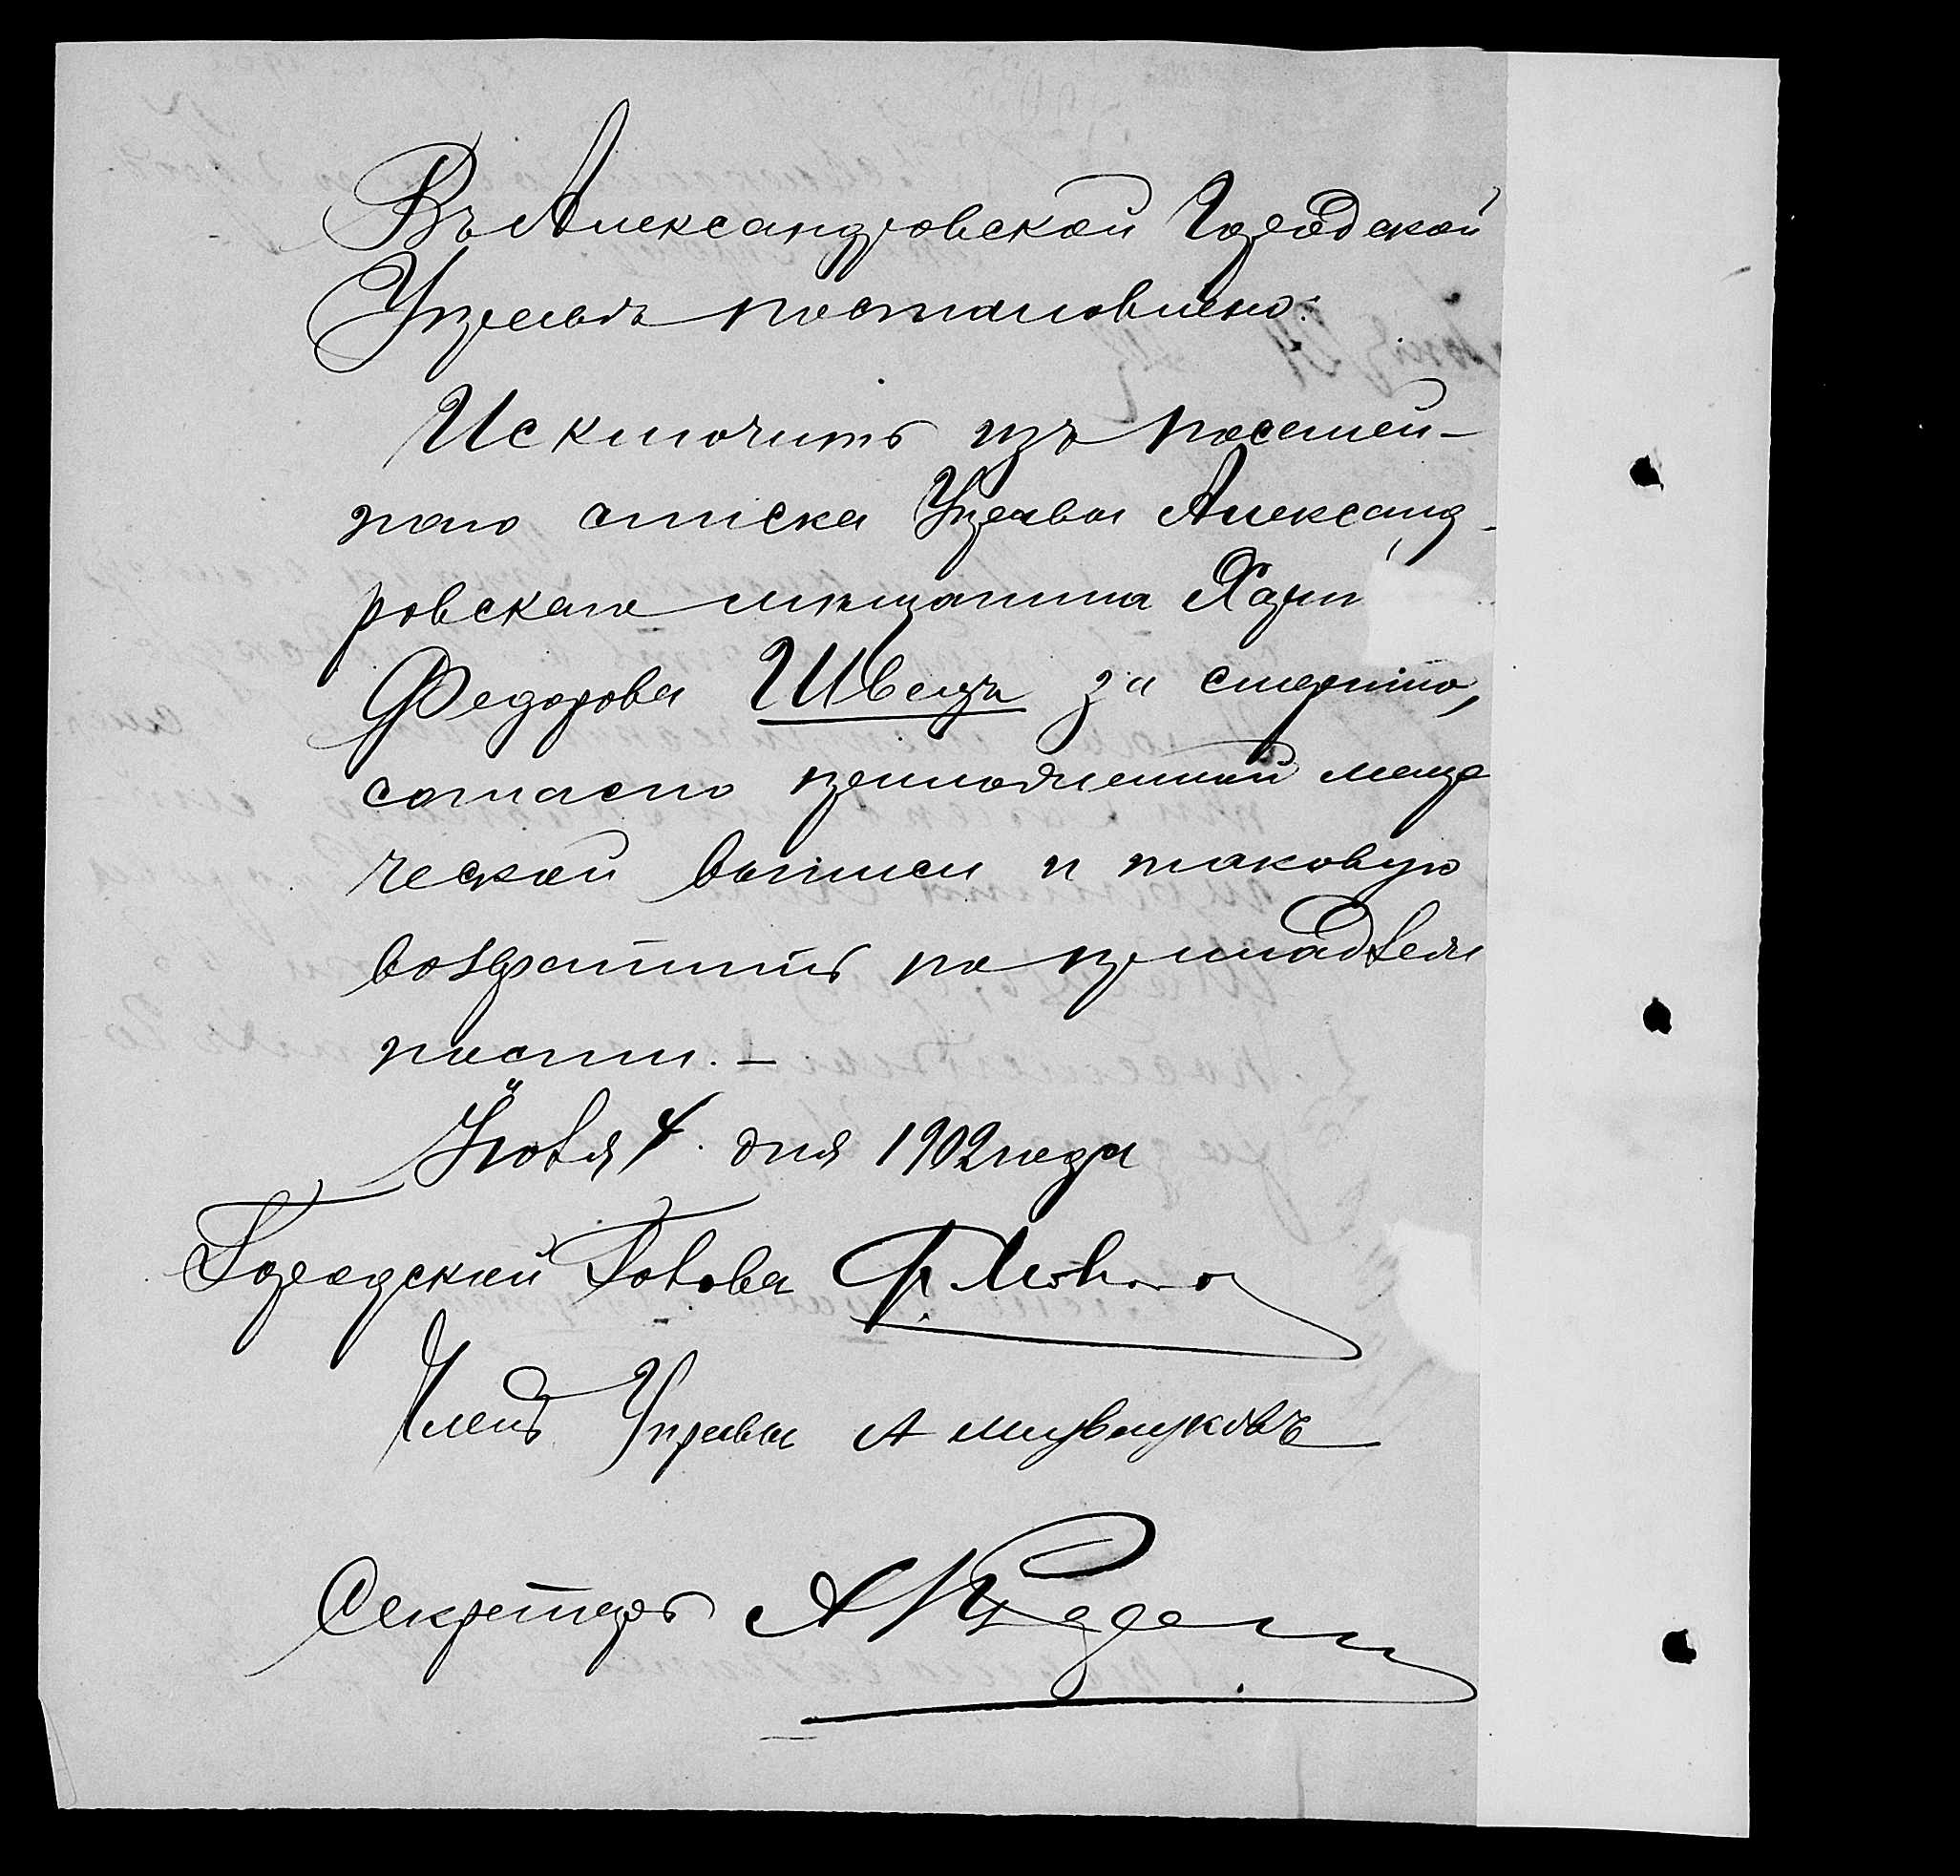 Въ Александровской Городской
Управѣ постановлено:
Исключить изъ посемей-
наго списка Управы Александ-
ровскаго мѣщанина Хари
Федорова Швецъ за смертію,
согласно приложенной метри
ческой выписи и таковую
возвратить по принадлеж
ности. —
Іюля 4 дня 1902 года
Городской Голова Ф.
Членъ Управы А
Секретарь А